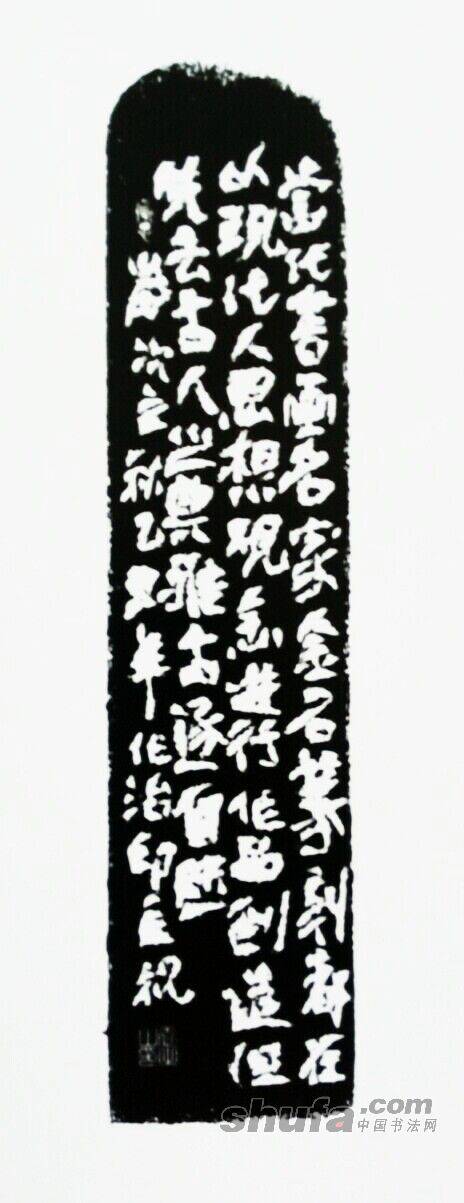 當代書画名家金石篆刻都在
以現代人思想观念進行作品創造但
失去古人之典雅古邃自然
歲次之秋乙丑年作治印主祝
shufa.com
中国书法网